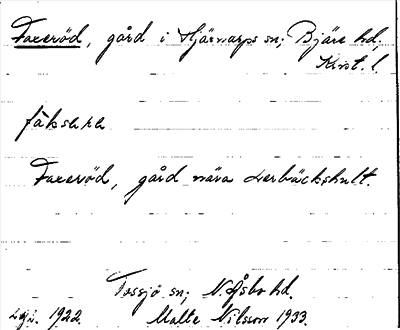 Faxeröd, gård i Hjärnarps sn; Bjäre hd,
Krist. l.
Faxeröd, gård nära Lerbäckshult.
Tossjö sn; N. Åsbo hd.
1922. Malte Nilsson 1933.